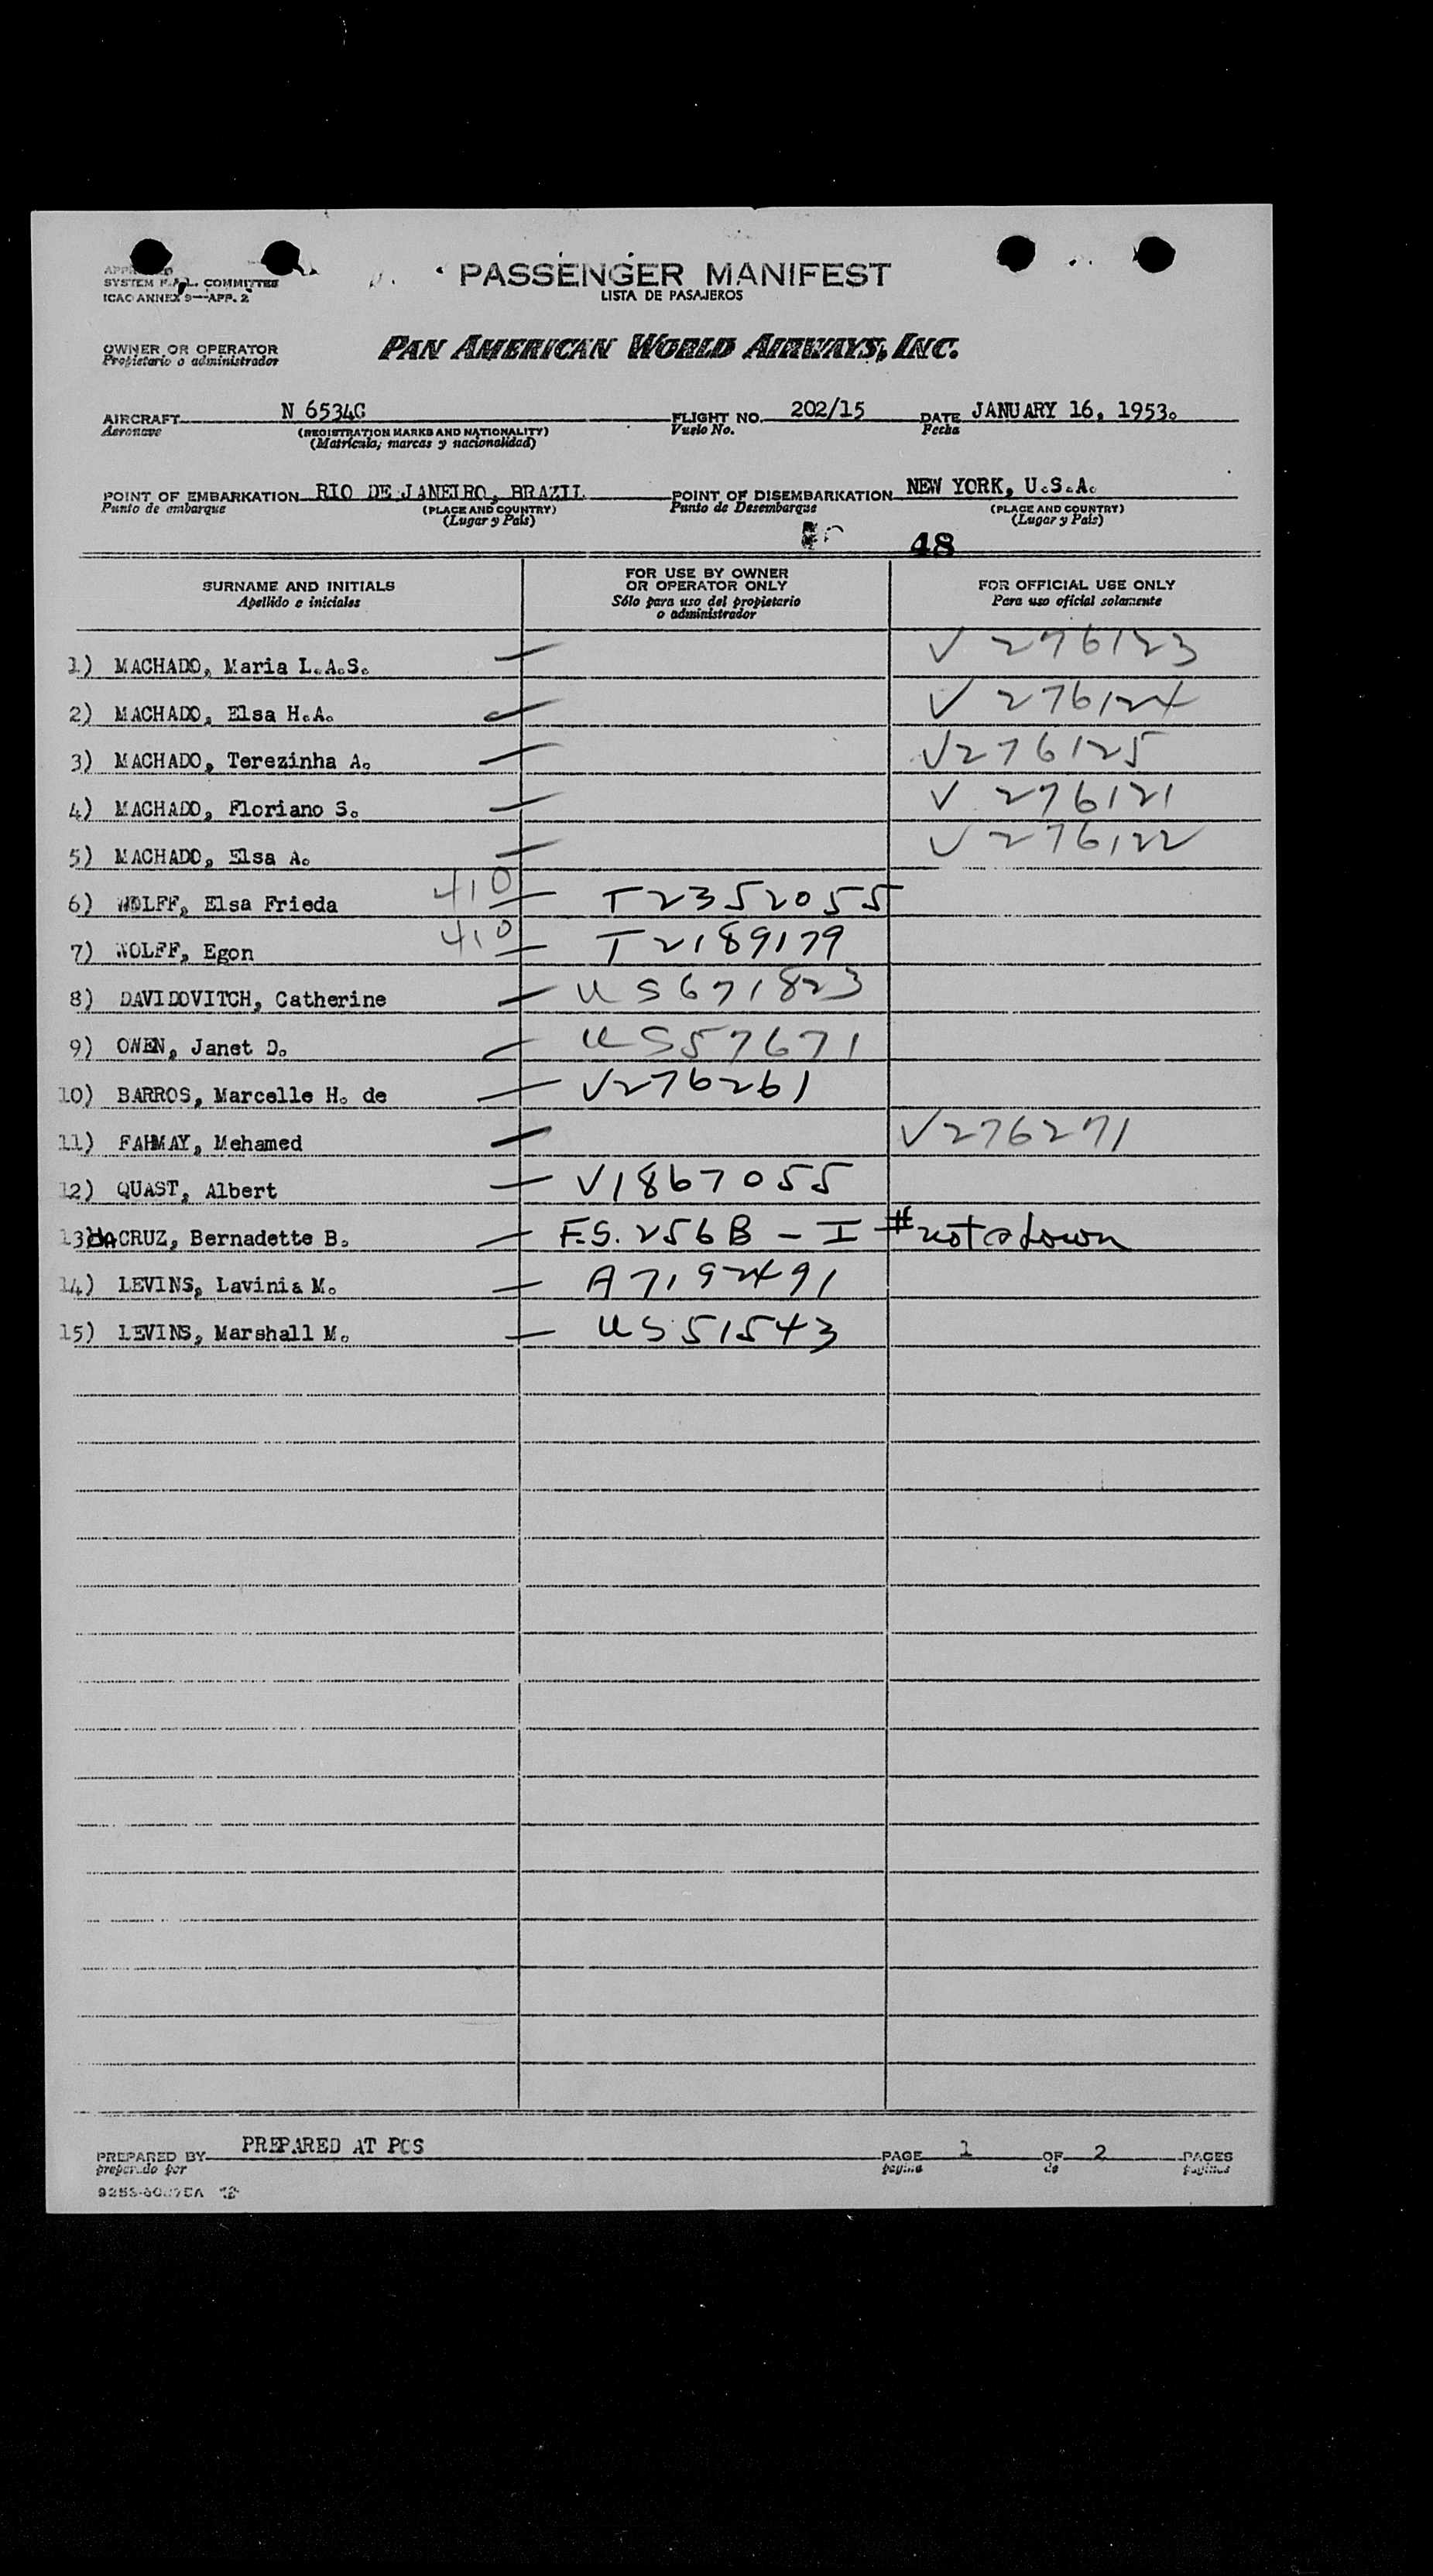 APPROVED
SYSTEM F.A.L. COMMITTEE
ICAO ANNEX 9—APP. 2
PASSENGER MANIFEST
LISTA DE PASAJEROS
OWNER OR OPERATOR
Propietario o administrador
PAN AMERICAN WORLD AIRWAYS, INC.
AIRCRAFT N 6534C FLIGHT NO. 202/15 DATE JANUARY 16, 1953.
Aeronave (REGISTRATION MARKS AND NATIONALITY) Vuelo No. Fecha
(Matrícula, marcas y nacionalidad)
POINT OF EMBARKATION RIO DE JANEIRO, BRAZIL POINT OF DISEMBARKATION NEW YORK, U.S.A.
Punto de embarque (PLACE AND COUNTRY) Punto de Desembarque (PLACE AND COUNTRY)
(Lugar y País) (Lugar y País)
48
SURNAME AND INITIALS FOR USE BY OWNER OR OPERATOR ONLY FOR OFFICIAL USE ONLY
Apellido e iniciales Sólo para uso del propietario o administrador Para uso oficial solamente
1) MACHADO, Maria L.A.S. — V 276123
2) MACHADO, Elsa H.A. — V 276124
3) MACHADO, Terezinha A. — V276125
4) MACHADO, Floriano S. — V 276121
5) MACHADO, Elsa A. — V 276122
6) WOLFF, Elsa Frieda 410 — T2352055
7) WOLFF, Egon 410 — T2189179
8) DAVIDOVITCH, Catherine — US671823
9) OWEN, Janet D. — US57671
10) BARROS, Marcelle H. de — V276261
11) FAHMAY, Mehamed — V276271
12) QUAST, Albert — V1867055
13) da CRUZ, Bernadette B. — F.S. 256B - I # not shown
14) LEVINS, Lavinia M. — A7192491
15) LEVINS, Marshall M. — US51543
PREPARED BY PREPARED AT PCS PAGE 1 OF 2 PAGES
preparado por página de páginas